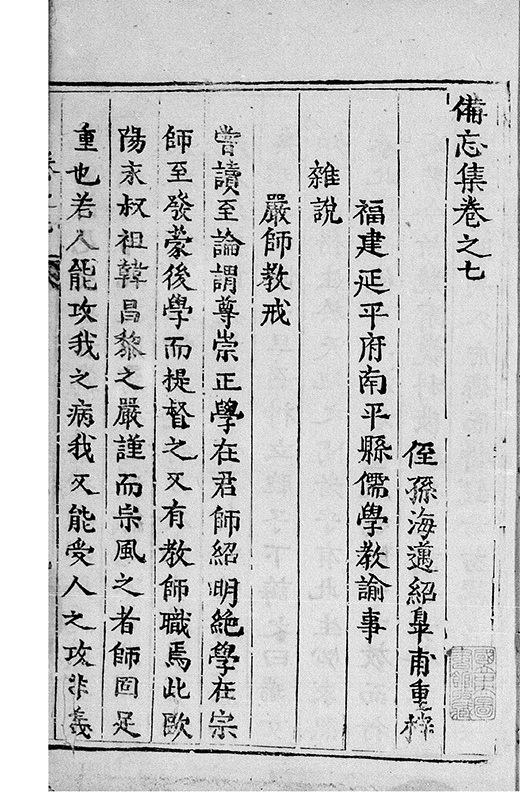 備忘集卷之七
侄孫海邁紹臯甫重梓
福建延平府南平縣儒學教諭事
雜說
嚴師教戒
嘗讀至論謂尊崇正學在君師紹明絶學在宗
師至發蒙後學而提督之又有教師職焉此歐
陽永叔祖韓昌黎之嚴謹而崇風之者師固足
重也若人能攻我之病我又能受人之攻非義